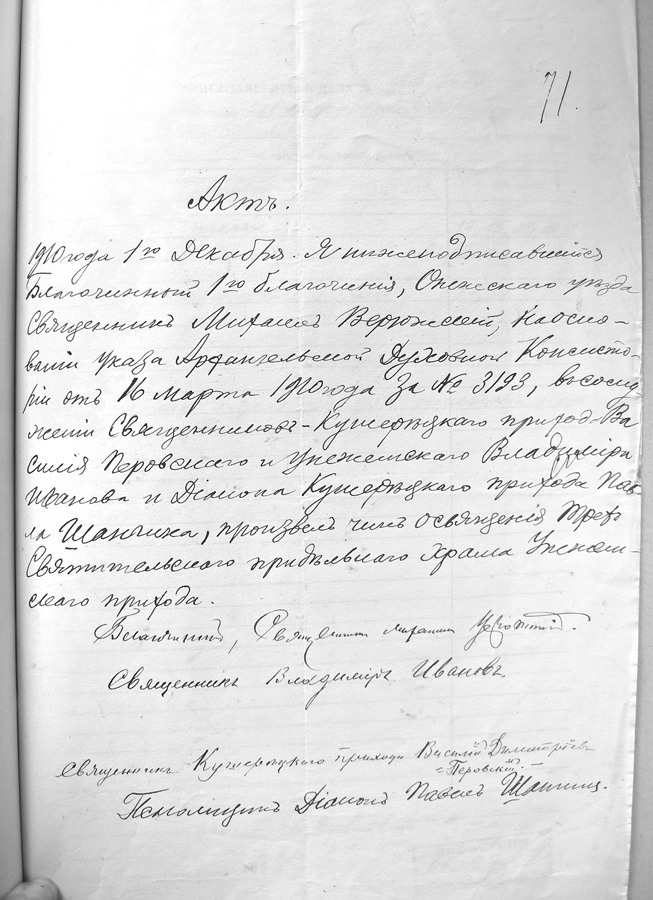 71.
Актъ.
1910 года 1го Декабря. Я нижеподписавшійся
Благочинный 1го благочинія, Онежскаго уѣзда
Священникъ Михаилъ Верюжскій, на осно-
ваніи указа Архангельской Духовной Консисто-
ріи отъ 16 Марта 1910 года за № 3193, въ сослу-
женіи Священниковъ - Кушерѣцкаго приход. Ва
силія Перовскаго и Унежемскаго Владиміра
Иванова и Діакона Кушерѣцкаго прихода Пав
ла, произвелъ чинъ освященія Трех
Святительскаго придѣльнаго храма Унежем-
скаго прихода.
Благочинный, Священникъ Михаилъ
Священникъ Владиміръ Ивановъ
Священникъ Кушерѣцкаго прихода Василій Димитріевъ
Перовскій.
Діаконъ Павелъ